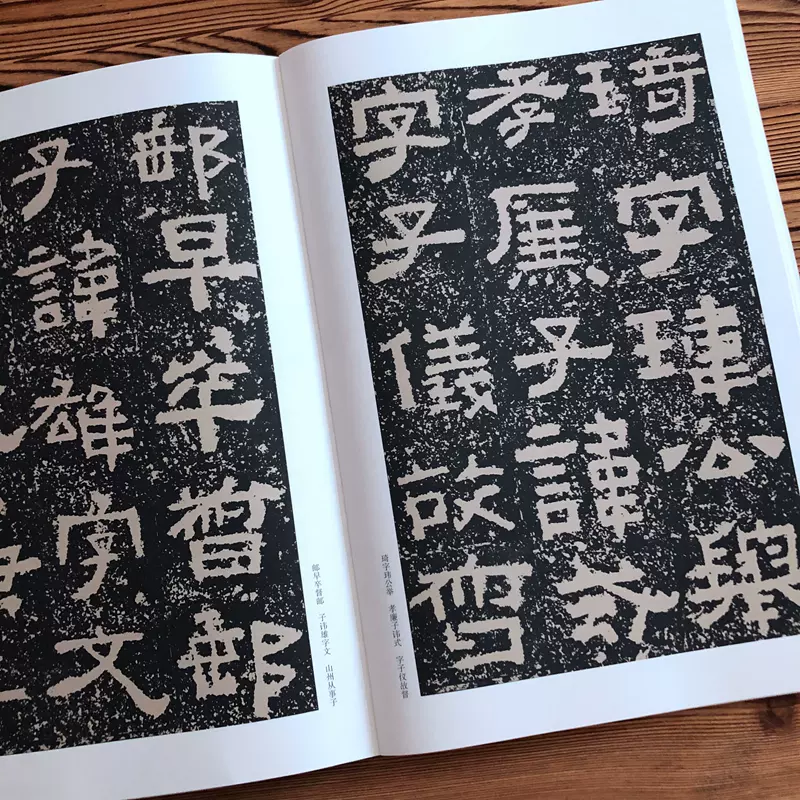 琦字瑋公舉
孝廉子諱式
字子儀故督
琦字玮公举 孝廉子讳式 字子仪故督
郵早卒督郵
子諱雄字文
邮早卒督邮 子讳雄字文 山州从事子